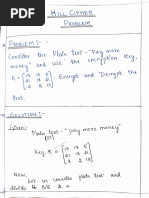 HILL CIPHER
PROBLEM
PROBLEM :-
Consider the Plain text "Pay more
money" and use the encryption key,
K = [17 17 5
21 18 21
2 2 19] Encrypt and Decrypt the
text.
SOLUTION :-
Given: Plain text - "pay more money"
(PT)
Key, K = [17 17 5
21 18 21
2 2 19]
Now, let us consider plain text and
divide it into 3.